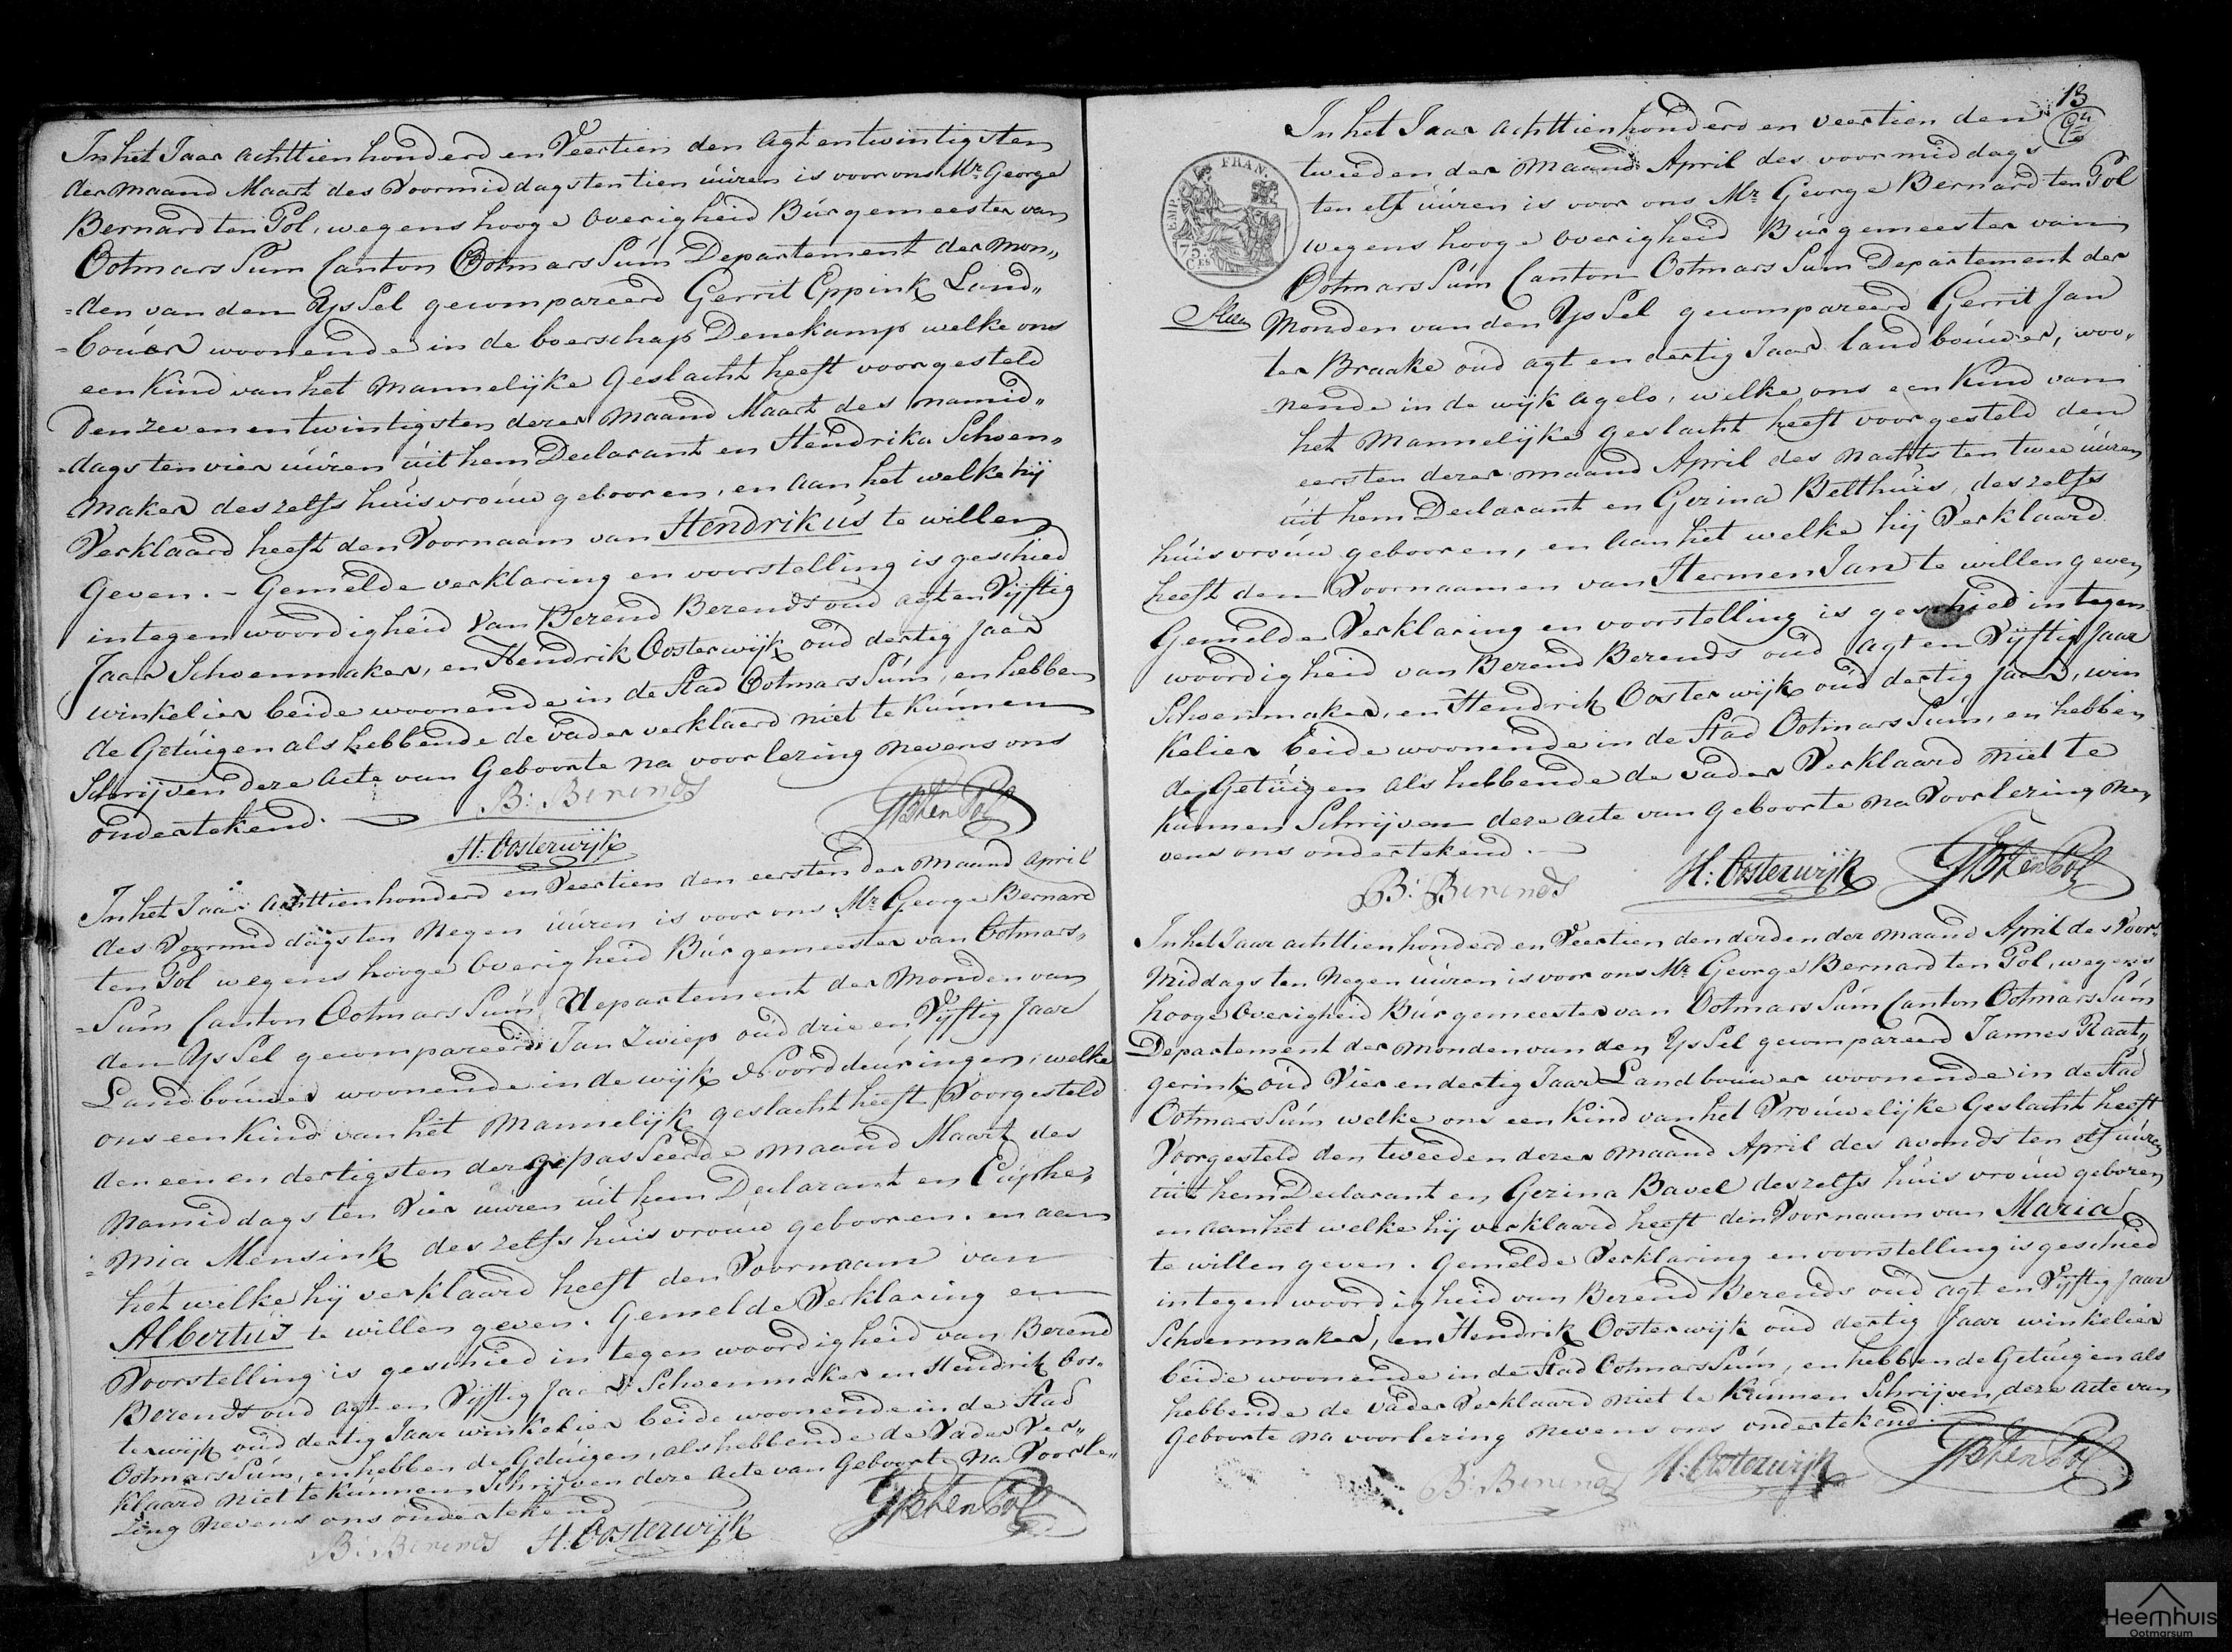 In het Jaar achttienhonderd en Veertien den agtentwintigsten
der maand Maart des Voormiddags ten tien úúren is voor ons Mr. George
Bernard ten Pol, wegens hooge Overigheid Búrgemeester van
OotmarsSúm Canton OotmarsSúm Departement der Mon„
=den van den YsSel gecompareerd Gerrit Eppink Land„
=boúer woonende in de boerschap Denekamp welke ons
een Kind van het Mannelijke Geslacht heeft voorgesteld
Den zevenentwintigsten dezer Maand Maart des namid„
=dags ten vier úúren úit hem Declarant en Hendrika Schoen„
maker deszelfs húisvroúw gebooren, en aan het welke hij
Verklaard heeft den Voornaam van Hendrikús te willen
Geven. – Gemelde verklaring en voorstelling is geschied
in tegenwoordigheid Van Berend Berends oud agt en Vijftig
Jaar Schoenmaker, en Hendrik Oosterwijk oúd dertig Jaar
winkelier beide woonende in de Stad OotmarsSúm, en hebben
de Getúigen als hebbende de vader verklaerd niet te Kúnnen
Schrijven deze Acte van Geboorte na voorlezing nevens ons
ondertekend.
B: Berends
GBtenPol
H: Oosterwijk
In het Jaar achttienhonderd en Veertien den eersten der maand April
des Voormiddags ten Negen úúren is voor ons Mr. George Bernard
ten Pol wegens hooge Overigheid Búrgemeester van Ootmars„
=Súm Canton OotmarsSúm Departement der Monden van
den YsSel gecompareerd Jan Zwiep oúd drie en Vijftig Jaar
Landboúwer woonende in de wijk Noorddeúringen, welke
ons een Kind van het Mannelijk geslacht heeft Voorgesteld
den een en dertigsten der gepasseerde maand Maart des
Namiddags ten Vier úúren úit hem Declarant en Eúphe„
=mia Mensink deszelfs húisvroúw gebooren. en aan
het welke hij verklaard heeft den Voornaam van
Albertús te willen geven. Gemelde Verklaring en
Voorstelling is geschied in tegenwoordigheid van Berend
Berends oud agt en Vijftig Jaar Schoenmaker en Hendrik Oos„
terwijk oúd dertig Jaar winkelier beide woonende in de Stad
OotmarsSúm, en hebben de Getúigen, als hebbende de Vader Ver„
klaard niet te Kúnnen Schrijven deze Acte van Geboorte na Voorle„
zing Nevens ons ondertekend
B: Berends H: Oosterwijk GBtenPol
13
In het Jaar achttienhonderd en veertien den
tweeden der Maand April des voormiddags
ten elf úúren is voor ons Mr. George Bernard ten Pol
wegens hooge Overigheid Búrgemeester van
OotmarsSúm Canton OotmarsSúm Departement der
EMP. FRAN.
75. CES
Monden van den YsSel gecompareerd Gerrit Jan
ter Braake oúd agt en dertig Jaar landboúwer, woo„
=nende in de wijk Agelo, welke ons een Kind van
het Mannelijke geslacht heeft voorgesteld den
eersten dezer maand April des Nachts ten twee úúren
úit hem Declarant en Gezina Belthúis, deszelfs
húisvroúw gebooren, en aan het welke hij Verklaard
heeft den Voornaamen van Hermen Jan te willen geven
Gemelde Verklaring en voorstelling is geschied in tegen
woordigheid van Berend Berends oúd agt en Vijftig Jaar
Schoenmaker, en Hendrik Oosterwijk oúd dertig Jaar, win
Kelier beide woonende in de Stad OotmarsSúm, en hebben
de Getúigen als hebbende de vader Verklaard niet te
Kúnnen Schrijven deze acte van geboorte na Voorlezing ne„
vens ons ondertekend.
B: Berends H: Oosterwijk GBtenPol
In het Jaar achttienhonderd en Veertien den derden der maand April des Voor„
Middags ten Negen úúren is voor ons Mr. George Bernard ten Pol, wegens
hooge Overigheid Búrgemeester van OotmarsSúm Canton OotmarsSúm
Departement der Monden van den YsSel gecompareerd Jannes Raat„
gerink oúd Vier en dertig Jaar Landboúwer woonende in de Stad
OotmarsSúm welke ons een Kind van het Vroúwelijke Geslacht heeft
Voorgesteld den tweeden dezer maand April des avonds ten elf úúren
úit hem Declarant en Gezina Bavel deszelfs húisvroúw geboren
en aan het welke hij verklaard heeft den Voornaam van Maria
te willen geven. Gemelde Verklaring en voorstelling is geschied
in tegenwoordigheid van Berend Berends oúd agt en Vijftig Jaar
Schoenmaker, en Hendrik Oosterwijk oud dertig Jaar winkelier
beide woonende in de Stad OotmarsSúm, en hebben de Getúigen als
hebbende de Vader Verklaard niet te Kúnnen Schrijven, deze acte van
Geboorte na voorlezing nevens ons ondertekend.
B: Berends H: Oosterwijk GBtenPol
Heemhuis
Ootmarsum